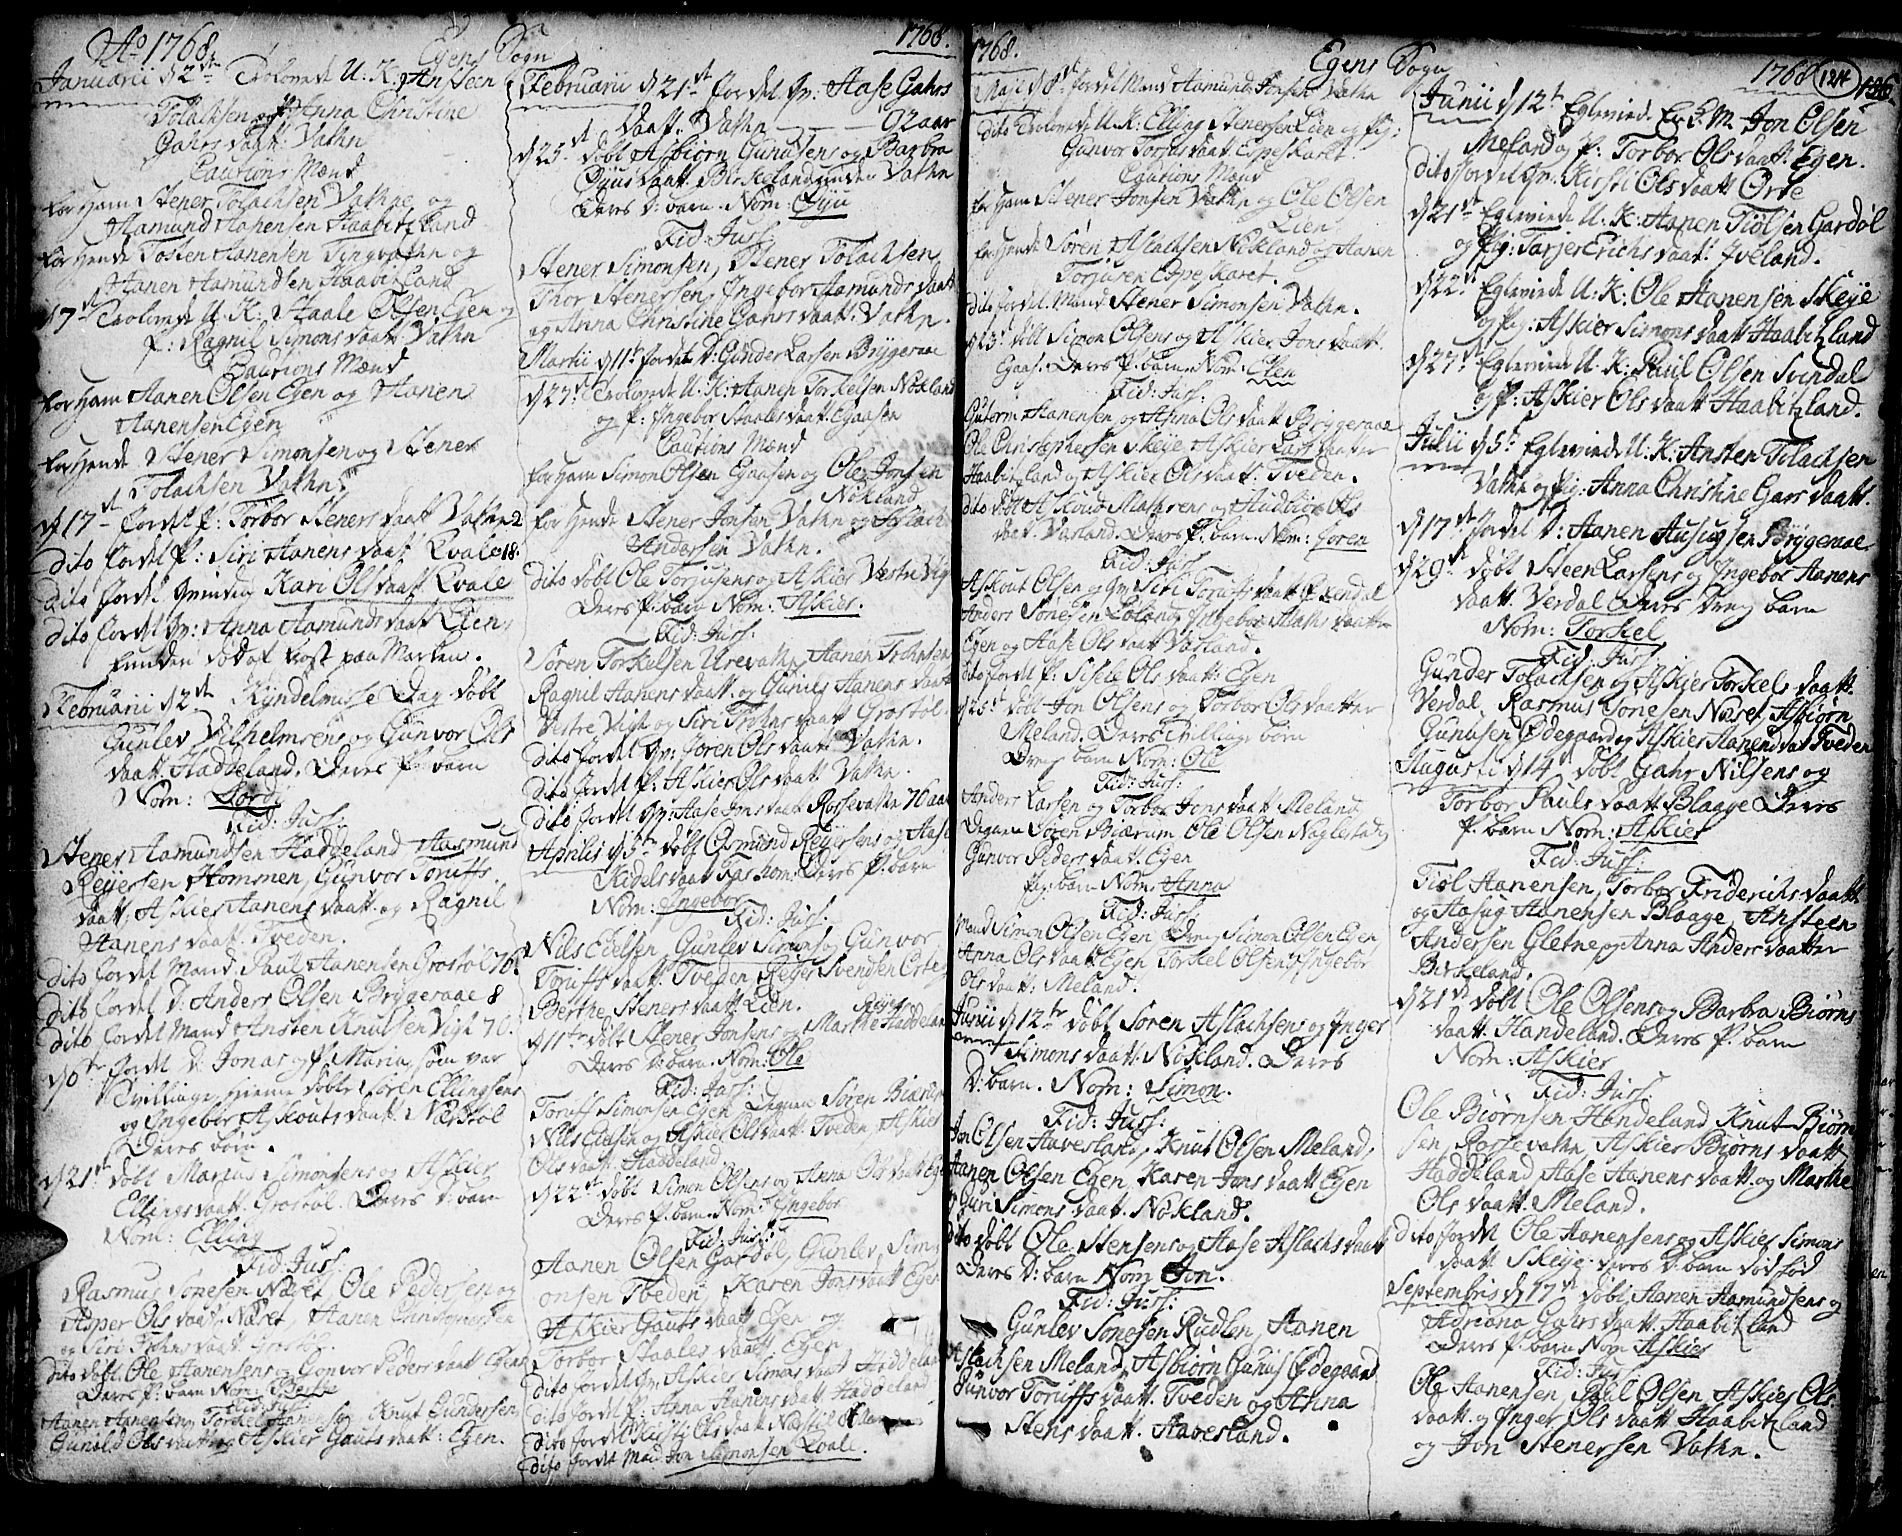 Ao 1768. Egens Sogn 1768.
Januarii d 2den Trolovede U. K: Ansteen
Tolachsen og Anna Christine
Gahrs daatt: Vathn
Cautions Mænd
for ham Stener Tolachsen Vathne og
Aamund Aanensen Haabitzland
for hende Tosten Aanensen Tingvathn og
Aanen Aamundsen Haabitzland
d 7de Trolovede U. K: Staale Olsen Egen og
P: Ragnil Simons daatt Vathn
Cautions Mænd
for ham Aanen Olsen Egen og Aanen
Aanensen Egen
for hende Stener Simonsen og Stener
Tolachsen Vathn
d 17de Jordet P: Torbor Steners daatt Vathn 2
Dito Jordet P: Siri Aanens daatt Qvale 18.
Dito Jordet Qvinden Kari Ols daatt Qvale
Dito Jordet Qv: Anna Aamunds daatt Lien
funden død af frost paa Marken.
Februarii d 2den Kyndelmisse Dag døbt
Gunlev Vilhelmsens og Gunvor Ols
daatt. Haddeland. Deres P. barn
Nom: Tord
Fid: Jus:
Stener Aamundsen Haddeland Aasmund
Reyersen Hommen, Gunvor Toruffs
daatt, Askier Aanens daatt og Ragnil
Aanens daatt. Tveden.
Dito Jordet Mand Paul Aanensen Grostøl 76
Dito Jordet D: Anders Olsen Bryggeraae 8
Dito Jordet Mand Ansten Knutsen Vigh 70.
Jordet D: Jonas og P. Maria, som var
Tvillinge hiemme døbt Søren Ellingsens
og Ingebor Askouts daatt Nærstøl
Deres børn.
d 21de døbt Marcus Simonsens og Askier
Ellings daatt. Grostøl. Deres D: barn
Nom: Elling
Fid: Jus:
Rasmus Tønesen Næset, Ole Pedersen og
Asper Ols daatt. Næset, Aanen
og Siri Trohns daatt. Grostøl.
Dito døbt Ole Aanensens og Gonvor Peders daatt Egen
Deres P. barn Nom:
Fid: Jus:
Aanen Aanensen, Torkel Aanensen, Knut Gundersen
Gunold Ols daatter og Askier Gauts daatt: Egen.
Februarii d 21de Jordet Qv: Aase Gahrs
daatt: Vathn 92 aar
d 25de døbt Asbiørn Gunusens og Barbra
Øyus daatt. Birkeland under Vathn
Deres D: barn. Nom: Øyu
Fid: Jus:
Stener Simonsen, Stener Tolachsen,
Thor Stenersen, Ingebor Aamunds daatt
og Anna Christine Gahrs daatt. Vathn.
Martii d 11te Jordet D: Gunder Larsen Bryggeraae
d 27de Trolovede U. K: Aanen Torkelsen Nokland
og P: Ingebor Staales daatt. Egaasen
Cautions Mænd
for ham Simon Olsen Egaasen og Ole Jonsen
Nokland
for hende Stener Jonsen Vathn og Aslach
Andersen Vathn.
Dito døbt Ole Torjusens og Askier Vestre Vig
Deres P. barn Nom: Askier.
Fid: Jus:
Søren Torkelsen Urevathn, Aanen Trohnsen
Ragnil Aanens daatt. og Gunild Aanens daatt
Vestre Vigh og Siri Trohns daatt Grostøl
Dito Jordet Qv: Søren Ols daatt Vathn.
Dito Jordet P: Askier Ols daatt Vathn.
Dito Jordet Qv: Aase Jons daatt Rossevathn 76 aar
Aprilis d 5te døbt Osmund Reyersens og Aase
Kidels daatt Deres P. barn
Nom: Ingebor
Fid: Jus:
Nils Edelsen, Gunlev Simonsen, Gunvor
Toruffs daatt. Tveden Reyer Svendsen Orte og
Berthe Steners daatt. Lien.
d 11te døbt Stener Jonsens og Marthe Reyers Haddeland
Deres D: barn. Nom: Ole
Fid: Jus:
Toruff Simonsen Egen Degnen Søren Biærum
Nils Edelsen og Askier Ols daatt. Tveden Askier
Ols daatt. Haddeland
d 22de døbt Simon Olsens og Anna Ols daatt Egen
Deres P. barn Nom: Ingebor
Fid: Jus:
Aanen Olsen Gardøl, Gunlev Sim-
onsen Tveden, Karen Jons daatt Egen
Askier Gauts daatt Egen og
Torbor Staales daatt. Egen
Dito Jordet Qv. Askier Simons daatt Haddeland
Dito Jordet P: Anna Aanens daatt Haddeland
Dito Jordet Kirsti Ols daatt Nærstøl
Dito Jordet Mand Jon Simonsen Qvale.
1768. Egens Sogn 1768 124 136
Maji d 8de Jordet Mand Aamund Jonsen Vathn
Dito Trolovede U. K: Elling Stenersen Lien og Pig:
Gunvor Torjus daatt. Espeskaret.
Cautions Mænd
for ham Stener Jonsen Vathn og Ole Olsen
Lien
for hende Søren Aslachsen Nokland og Aanen
Torjusen Espeskaret.
Dito Jordet. Mand Stener Simonsen Vathn.
d 13de døbt Simon Olsens og Askier Jons daatt.
Egaas. Deres P. barn. Nom: Elen
Fid: Jus:
Gutorm Aanensen og Anna Ols daatt Bryggeraae
Ole Christophersen Skeye Askier Lars daatter
Haabitzland og Askier Ols daatt. Tveden.
Dito døbt Askoud Mathæsens og Audbior Ols
daatt. Vasland. Deres P. barn. Nom: Soren
Fid: Jus:
Askout Olsen og Qv: Siri Toruffs daatt Qvendal
Anders Tønesen og Ingebor Staales daatter
Egen og Aase Ols daatt Vasland.
Dito Jordet P. Sisele Ols daatt: Egen
d 25de døbt Jon Olsens og Torbor Ols daatter
Meland. Deres Tvillinge børn
Dreng barn Nom: Ole
Fid: Jus:
Anders Larsen og Torbor Jons daatt. Meland
Degnen Søren Biærum Ole Olsen Naglestad og
Gunvor Peders daatt. Egen
Pig. barn Nom. Anna
Fid: Jus:
Mand Simon Olsen Egen Dreng Simon Olsen Egen
Anna Ols daatt Egen Torkel Olsen og Ingebor
Ols daatt: Meland.
Junii d 12te døbt Søren Aslachsens og Inger
Simons daatt. Nokland. Deres
D: barn. Nom: Simon.
Fid: Jus:
Jon Olsen Aavesland, Knut Olsen Meland,
Aanen Olsen Egen, Karen Jons daatt Egen
og Guri Simons daatt. Nokland.
Dito døbt Ole Stensens og Aase Aslachs daatt
Deres D: barn Nom Jon.
Fid: Jus:
Gunlev Tønesen Rudlen, Aanen
Aslachsen Meland, Asbiørn Gunus Ødegaard
Gunvor Toruffs daatt. Tveden og Anna
Stens daatt. Aavesland.
Junii d 12te Egteviede E. M. Jon Olsen
Meland og P: Torbor Ols daatt. Egen.
Dito Jordet Qv: Kirsti Ols daatt Orte
d 21de Egteviede U. K: Aanen Tiølsen Gardøl
og Pig: Tarjer Erichs daatt. Iveland.
d 22de Egteviede U. K: Ole Aanensen Skeye
og Pig: Askier Simons daatt Haabitzland
d 27de Egteviede U. K: Paul Olsen Svindal
og P: Askier Ols daatt Haabitzland.
Julii d 5te Egteviede U. K: Ansten Tolachsen
Vathn og Pig: Anna Christine Gars daatt.
d 17de Jordet D: Aanen Ausugsen Bryggeraae
d 29de døbt Steen Larsens og Ingebor Aanens
daatt. Verdal Deres Dreng barn
Nom: Torkel
Fid: Jus:
Gunder Tolachsen og Askier Torkels daatt.
Verdal, Rasmus Tonesen Næset, Asbiørn
Gunusen Ødegaard og Askier Aanens daatt Tveden
Augusti d 14de døbt Gahr Nilsens og
Torbor Pauls daatt Blaage Deres
P. barn Nom: Askier
Fid: Jus:
Tiøl Aanensen, Torbor Friderichs daatt
og Aasug Aanensen Blaage, Ansteen
Andersen Gletne og Anna Anders daatter
Birkeland.
d 21de døbt Ole Olsens og Barbra Biørns
daatt. Handeland. Deres P. barn
Nom: Askier
Fid: Jus:
Ole Biørnsen Handeland Knut Biørn-
sen Rossevathn, Askier Biørns daatt
Haddeland, Aase Aanens daatt. og Marthe
Ols daatt. Meland.
Dito Jordet Ole Aanensens og Askier Simons
daatt. Skeye deres D: barn dødfød
Septembris d 17de døbt Aanen Aamundsens og
Adriana Gahrs daatt. Haabitzland
Deres P. barn Nom Askier
Fid: Jus:
Ole Aanensen, Poul Olsen, Askier Ols
daatt. og Inger Ols daatt. Haabitzland
og Jon Stenersen Vathn.